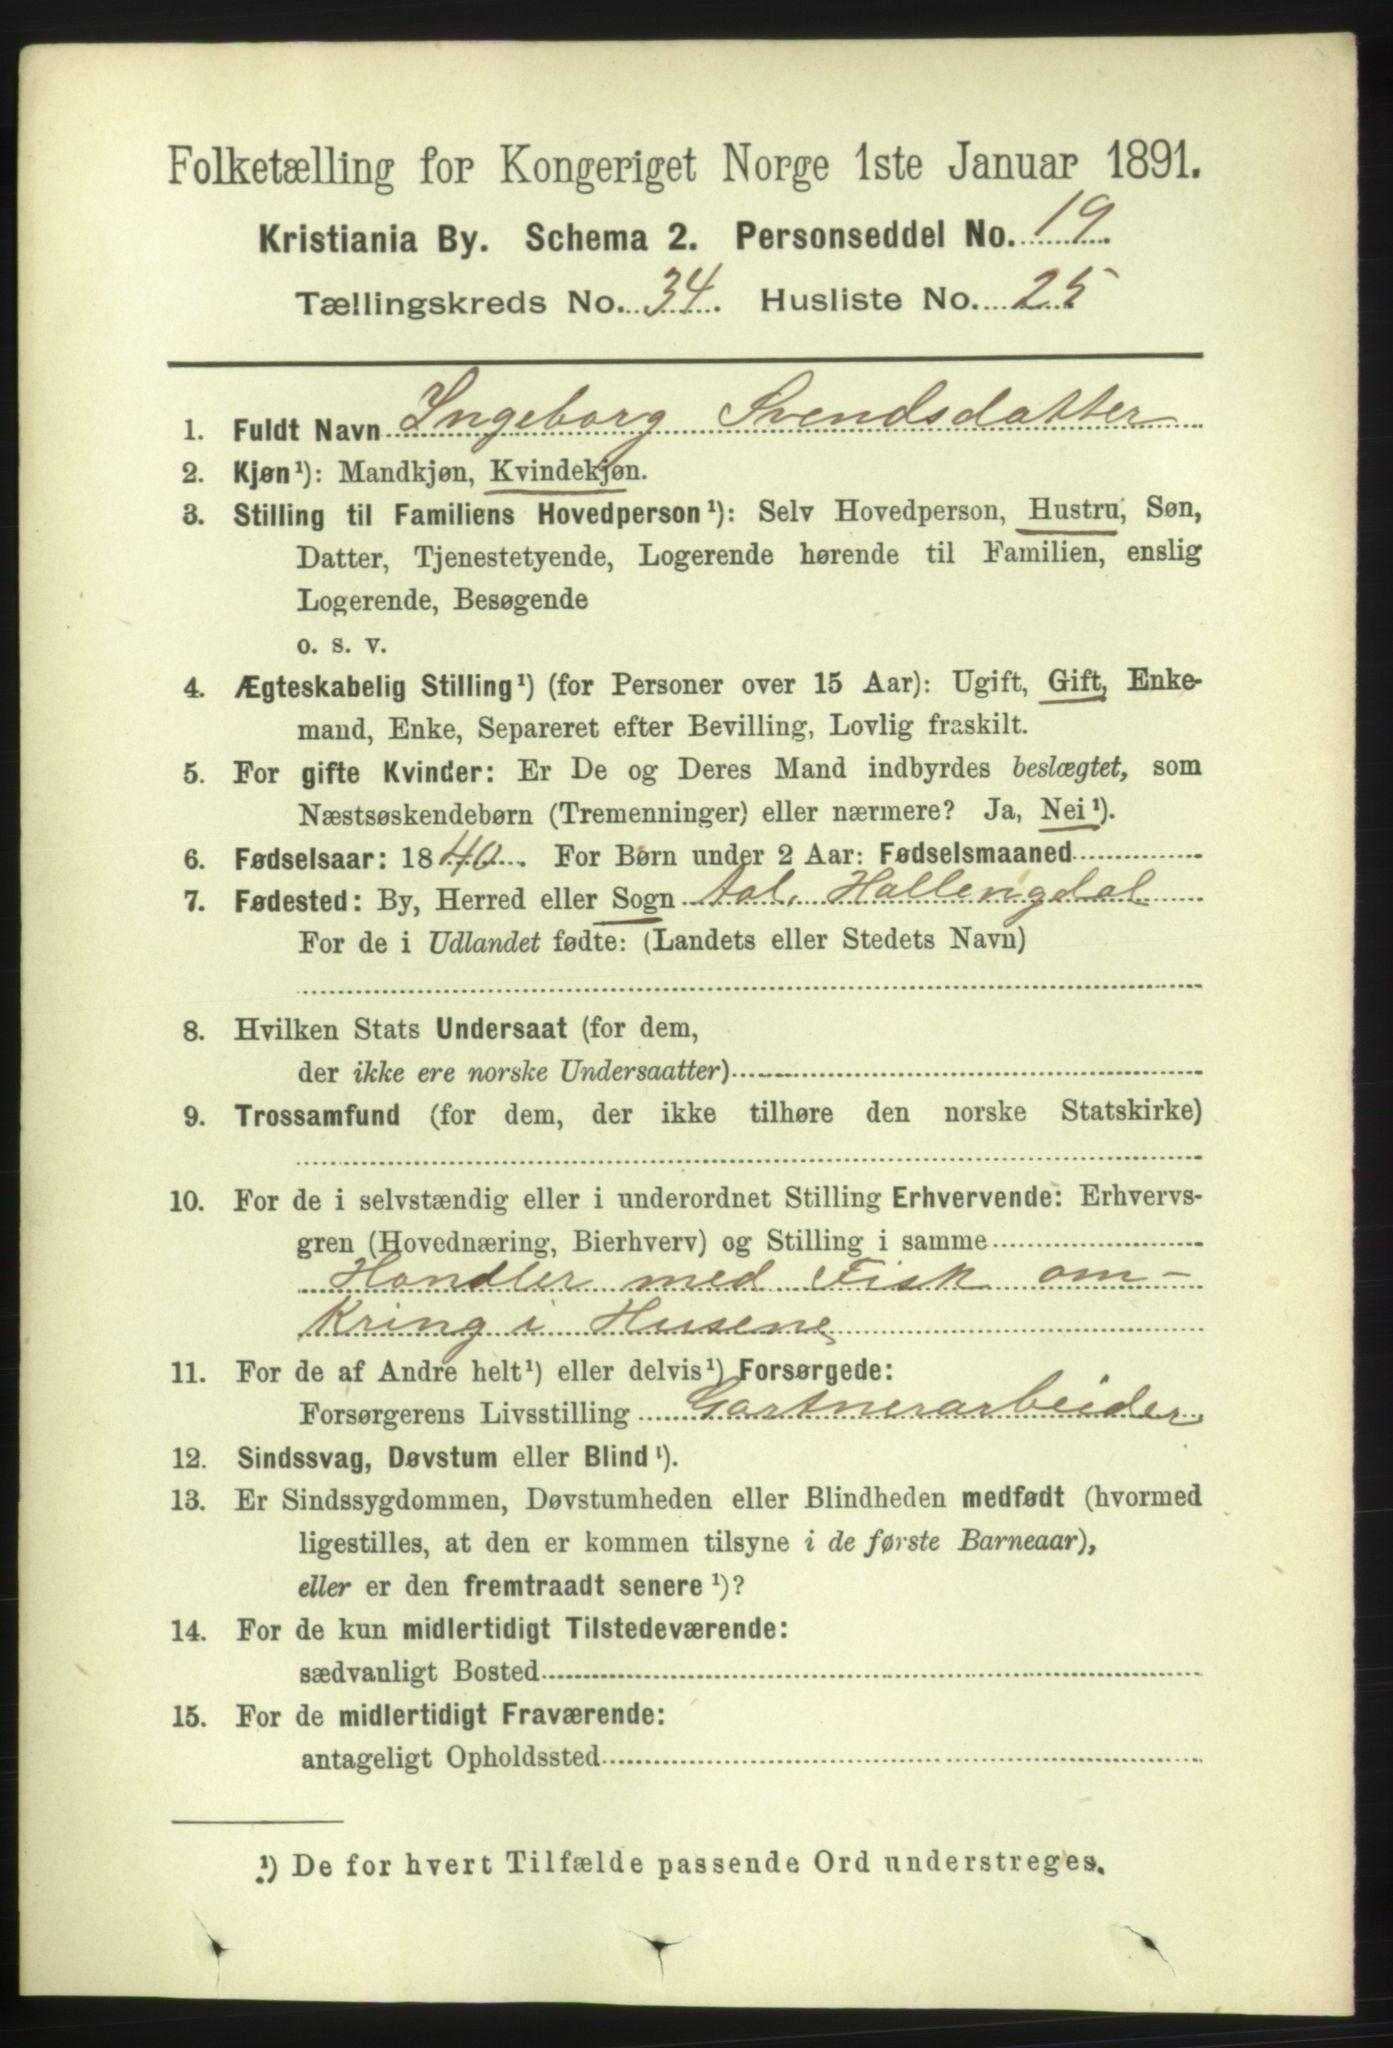 Folketælling for Kongeriget Norge 1ste Januar 1891.
Kristiania By. Schema 2. Personseddel No. 19
Tællingskreds No. 34. Husliste No. 25
1. Fuldt Navn Ingeborg Svendsdatter
2. Kjøn¹): Mandkjøn, Kvindekjøn.
3. Stilling til Familiens Hovedperson¹): Selv Hovedperson, Hustru, Søn,
Datter, Tjenestetyende, Logerende hørende til Familien, enslig
Logerende, Besøgende
o. s. v.
4. Ægteskabelig Stilling¹) (for Personer over 15 Aar): Ugift, Gift, Enke-
mand, Enke, Separeret efter Bevilling, Lovlig fraskilt.
5. For gifte Kvinder: Er De og Deres Mand indbyrdes beslægtet, som
Næstsøskendebørn (Tremenninger) eller nærmere? Ja, Nei¹).
6. Fødselsaar: 1840. For Børn under 2 Aar: Fødselsmaaned
7. Fødested: By, Herred eller Sogn Aal, Hallengdal
For de i Udlandet fødte: (Landets eller Stedets Navn)
8. Hvilken Stats Undersaat (for dem,
der ikke ere norske Undersaatter)
9. Trossamfund (for dem, der ikke tilhøre den norske Statskirke)
10. For de i selvstændig eller i underordnet Stilling Erhvervende: Erhvervs-
gren (Hovednæring, Bierhverv) og Stilling i samme
Handler med Fisk om-
kring i Husene
11. For de af Andre helt¹) eller delvis¹) Forsørgede:
Forsørgerens Livsstilling Gartnerarbeider
12. Sindssvag, Døvstum eller Blind¹).
13. Er Sindssygdommen, Døvstumheden eller Blindheden medfødt (hvormed
ligestilles, at den er kommen tilsyne i de første Barneaar),
eller er den fremtraadt senere¹)?
14. For de kun midlertidigt Tilstedeværende:
sædvanligt Bosted
15. For de midlertidigt Fraværende:
antageligt Opholdssted
¹) De for hvert Tilfælde passende Ord understreges.